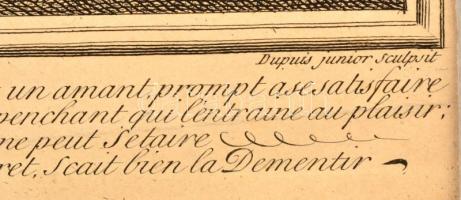 Dupuis junior sculpsit
un amant, prompt a se satisfaire
penchant qui l'entraine au plaisir;
ne peut Se taire
ret, Scait bien la Dementir